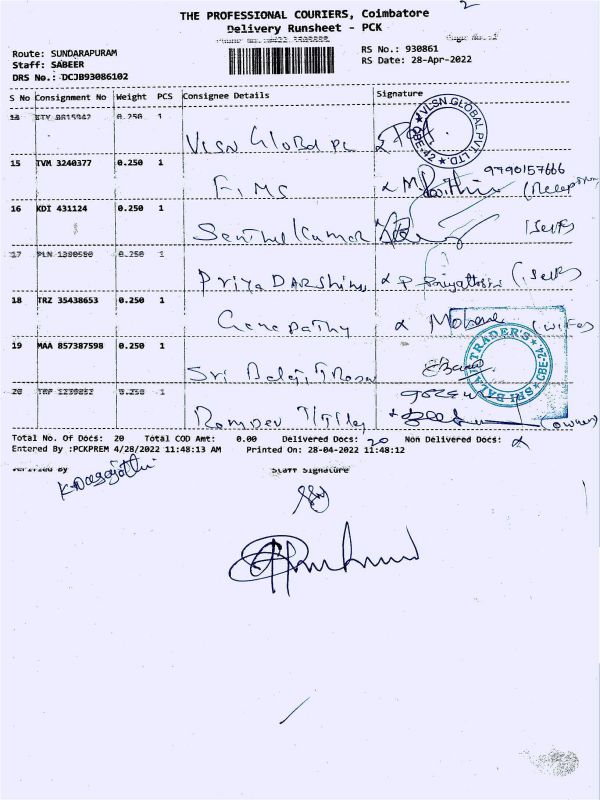 2
THE PROFESSIONAL COURIERS, Coimbatore
Delivery Runsheet - PCK
Route: SUNDARAPURAM
Staff: SABEER
DRS No.: DCJB93086102
RS No.: 930861
RS Date: 28-Apr-2022
S No Consignment No Weight PCS Consignee Details Signature
14 0.250 1 VLSN Global PL VLSN GLOBAL PVT. LTD. CBE-42
15 TVM 3240377 0.250 1 FIMS 9790157666
16 KDI 431124 0.250 1 Senthil Kumar (Self)
17 PLN 0.250 1 Priya DARShini (Self)
18 TRZ 35438653 0.250 1 Ganapathy (wife)
19 MAA 857387598 0.250 1 Sri Balaji SRI BALAJI TRADER'S CBE-24
20 0.250 1 (owner)
Total No. Of Docs: 20 Total COD Amt: 0.00 Delivered Docs: 20 Non Delivered Docs:
Entered By :PCKPREM 4/28/2022 11:48:13 AM Printed On: 28-04-2022 11:48:12
Verified By Staff Signature